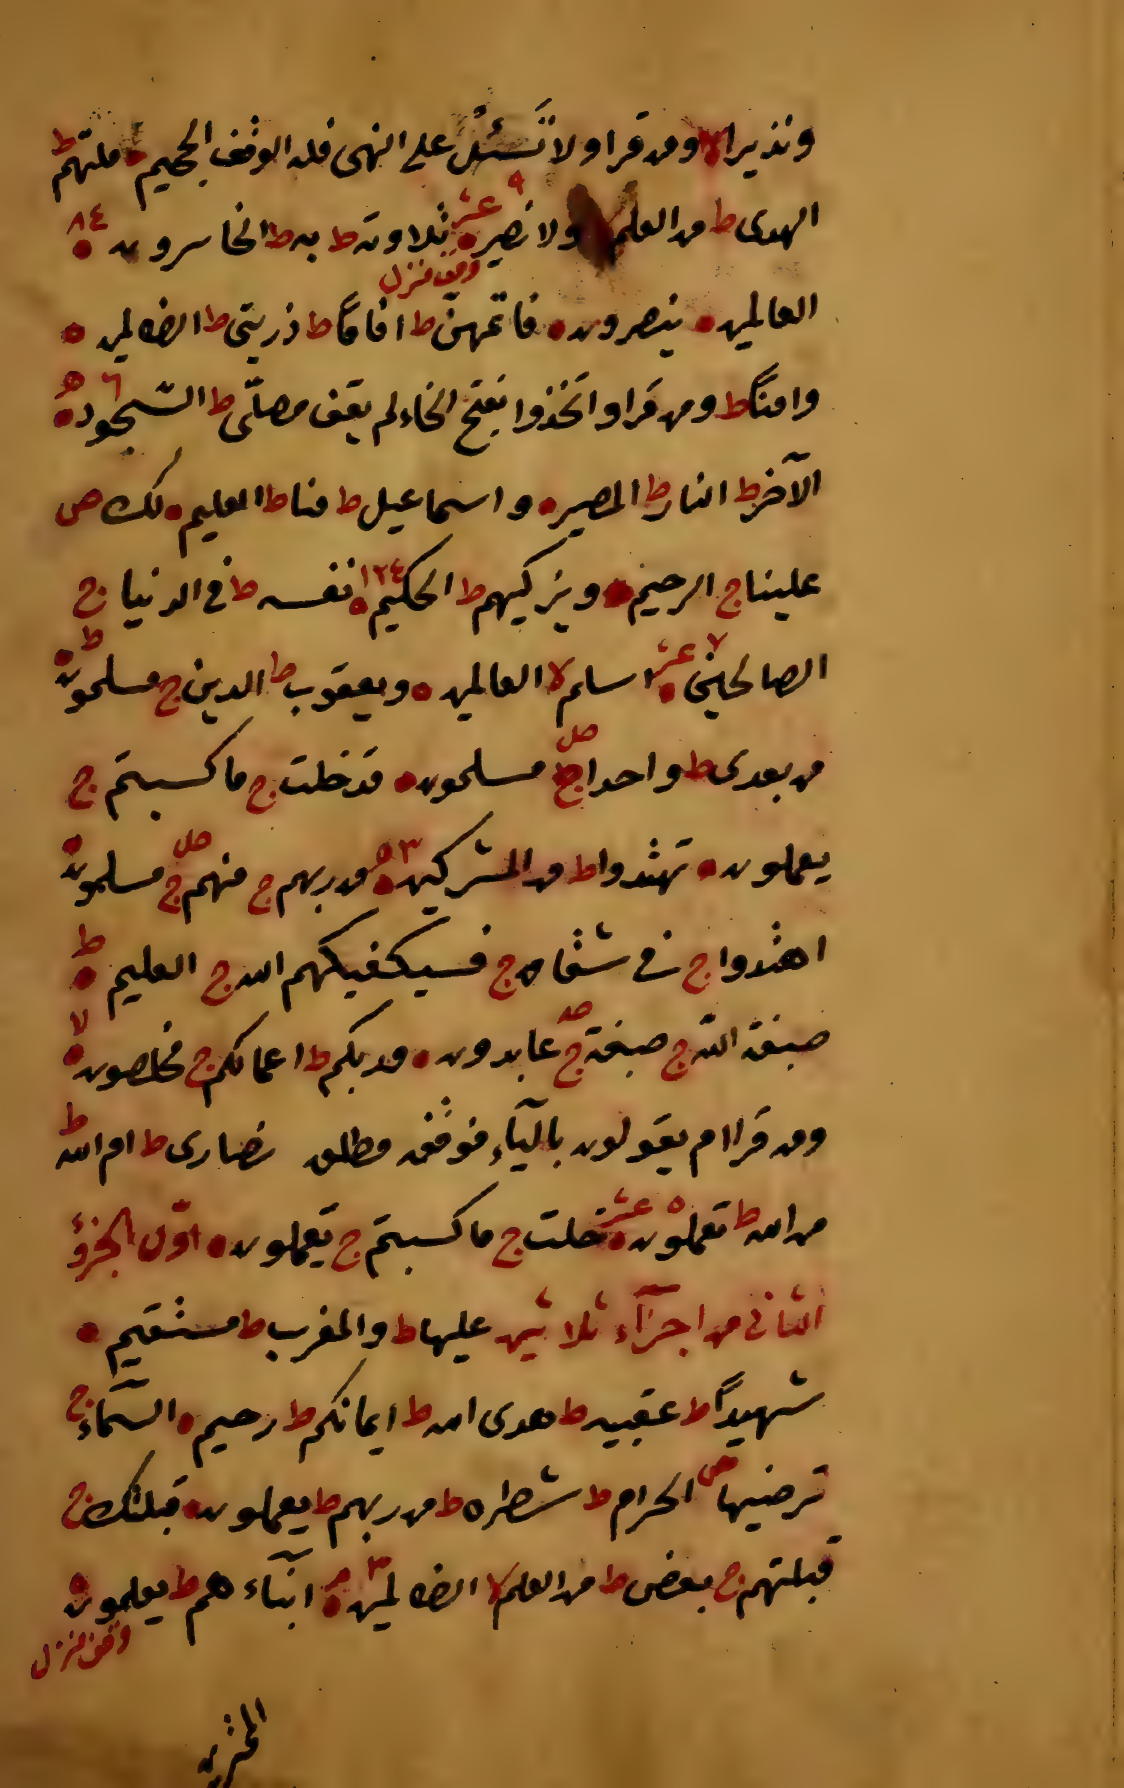 ونذيرا لا ومن قرا ولا تَسـئلْ على النهى فله الوقف الجحيم ملتهم ط
الهدى ط من العلم لا ولا نصير ٩ عشر تلاوته ط به ط الخاسرون ٨٤
وقف منزل
العالمين ينصرون فاتمهنّ ط اماما ط ذريتى ط الظالمين ه
وامنًا ط ومن قرا واتخذوا بفتح الخاء لم يقف مصلّى ط السّجود ٦ ه
الآخر ط النار ط المصير واسماعيل ط منا ط العليم لك ص
علينا ج الرحيم ويزكيهم ط الحكيم ١٢٤ نفسه ط فى الدنيا ج
الصالحين ٧ عشر اسلم لا العالمين ه ويعقوب ط الدين ج مسلمون ط
من بعدى ط واحدا ج صل مسلمون قد خلت ج ما كسبتم ج
يعملون تهتدوا ط من المشركين ٣ ه من ربهم ج منهم ج صل مسلمون
اهتدوا ج فى شقاق ج فسيكفيكهم الله ج العليم ط
صبغة اللّه ج صبغة ج صد عابدون وربكم ط اعمالكم ج مخلصون لا
ومن قرا ام يقولون بالياء فوقف مطلق نصارى ط ام اللّه ط
من الله ط تعملون ٥ عشر خلت ج ما كسبتم ج يعملون اوّل الجزؤ
الثانى من اجزآء ثلاثين عليها ط والمغرب ط مستقيم
شهيدًا ط عقبيه ط هدى الله ط ايمانكم ط رحيم السّماء ج
ترضيها ص الحرام ط شطره ط من ربهم ط يعملون قبلتك ج
قبلتهم ج بعض ط من العلم لا الظالمين م ٣ ابناءهم ط يعلمون ه
وقف منزل
الممترين